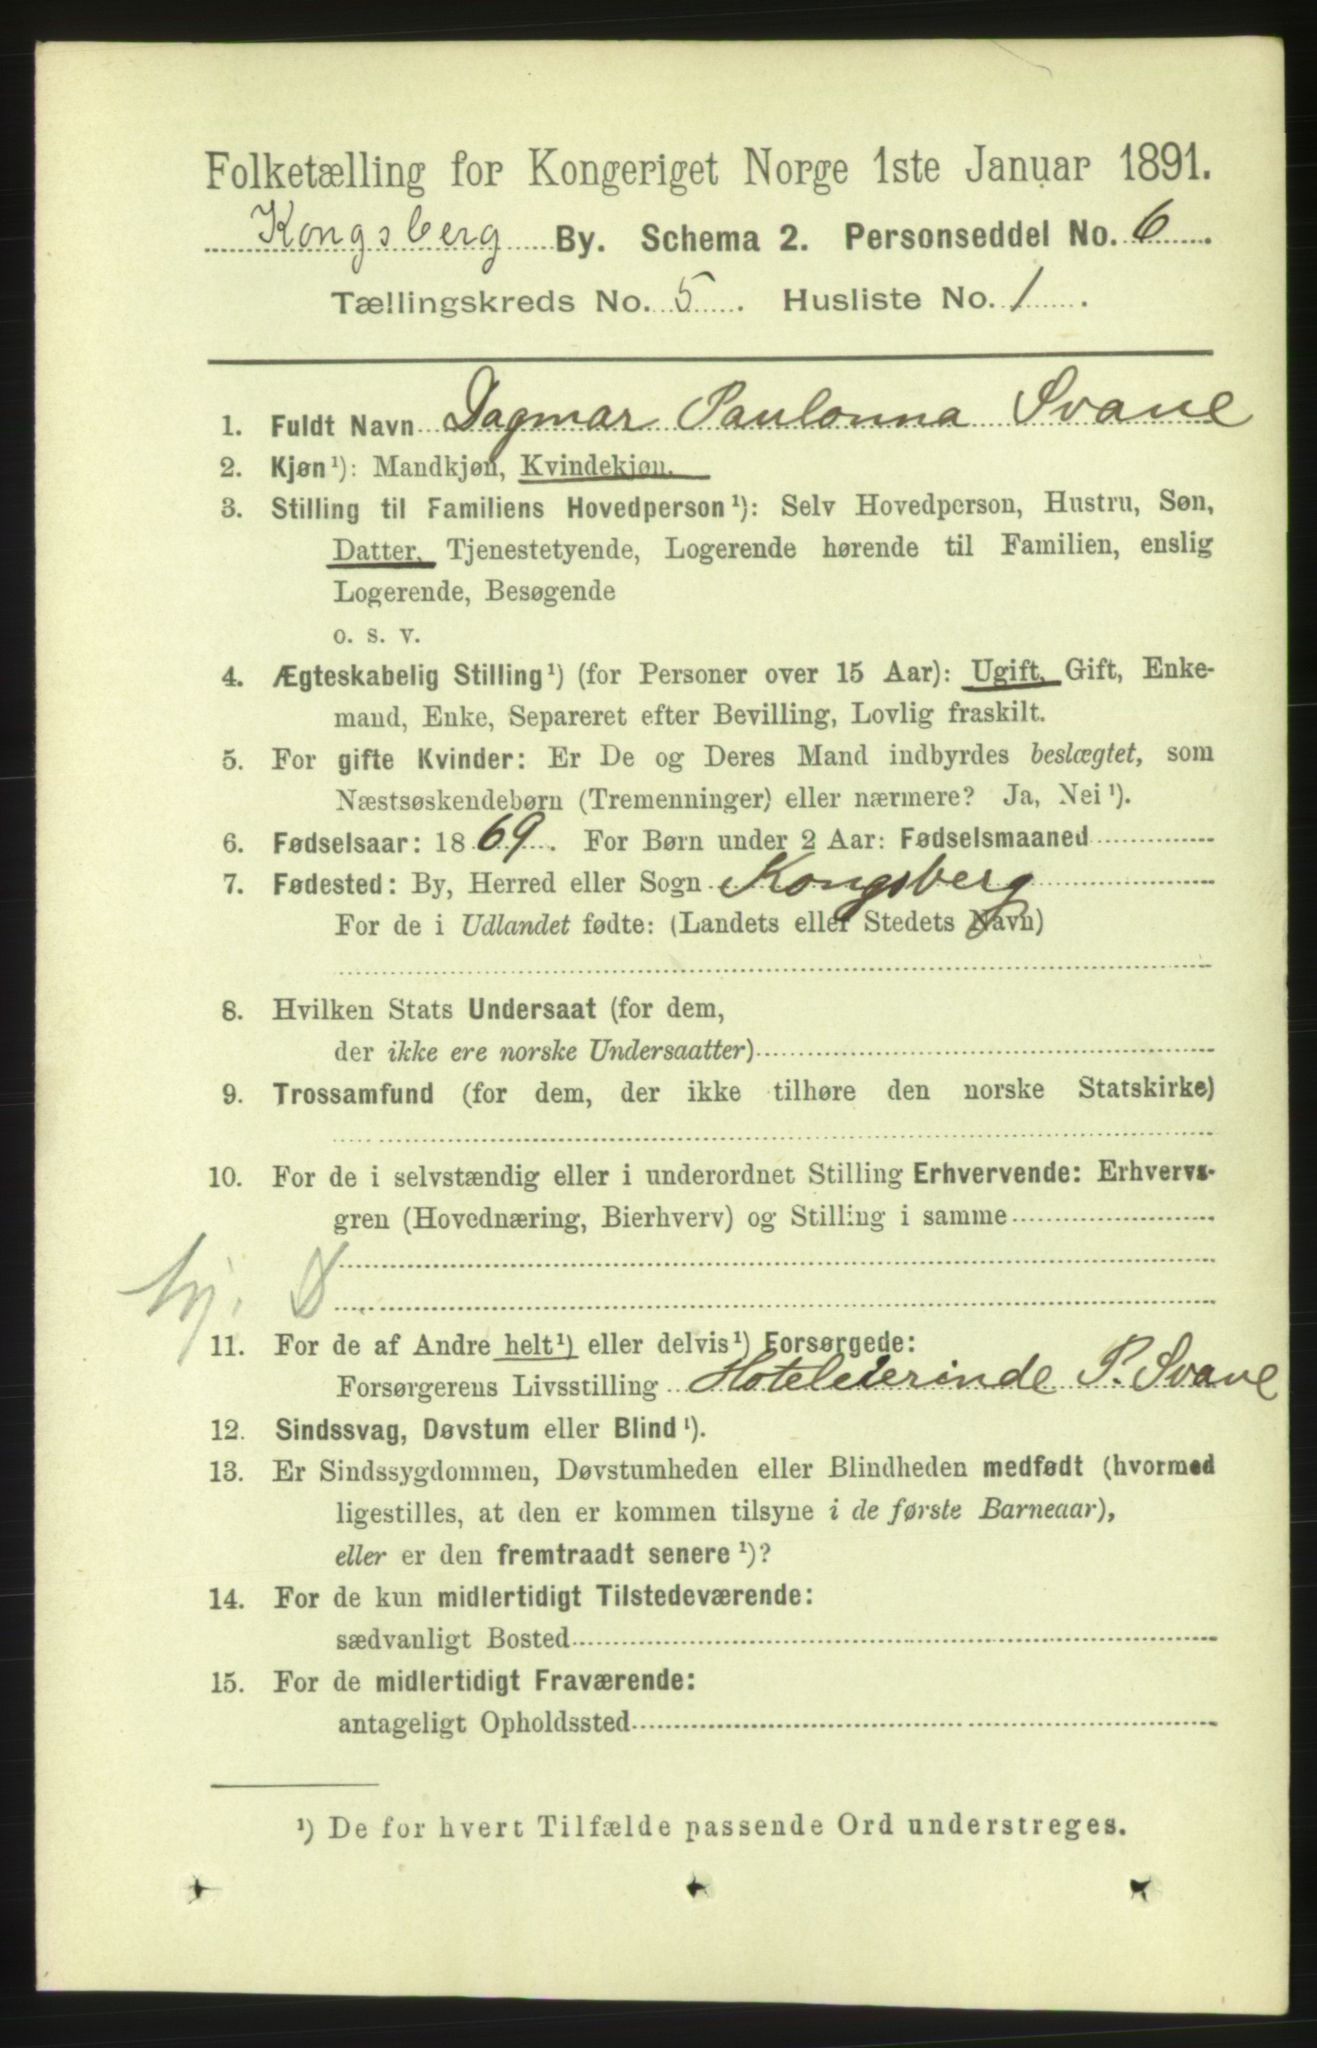 Folketælling for Kongeriget Norge 1ste Januar 1891.
Kongsberg By. Schema 2. Personseddel No. 6.
Tællingskreds No. 5. Husliste No. 1.
1. Fuldt Navn Dagmar Paulonna Svane
2. Kjøn¹): Mandkjøn, Kvindekjøn.
3. Stilling til Familiens Hovedperson¹): Selv Hovedperson, Hustru, Søn,
Datter, Tjenestetyende, Logerende hørende til Familien, enslig
Logerende, Besøgende
o. s. v.
4. Ægteskabelig Stilling¹) (for Personer over 15 Aar): Ugift, Gift, Enke-
mand, Enke, Separeret efter Bevilling, Lovlig fraskilt.
5. For gifte Kvinder: Er De og Deres Mand indbyrdes beslægtet, som
Næstsøskendebørn (Tremenninger) eller nærmere? Ja, Nei¹).
6. Fødselsaar: 1869. For Børn under 2 Aar: Fødselsmaaned
7. Fødested: By, Herred eller Sogn Kongsberg
For de i Udlandet fødte: (Landets eller Stedets Navn)
8. Hvilken Stats Undersaat (for dem,
der ikke ere norske Undersaatter)
9. Trossamfund (for dem, der ikke tilhøre den norske Statskirke)
10. For de i selvstændig eller i underordnet Stilling Erhvervende: Erhvervs-
gren (Hovednæring, Bierhverv) og Stilling i samme
hj. D
11. For de af Andre helt¹) eller delvis¹) Forsørgede:
Forsørgerens Livsstilling Hoteleierinde P. Svane
12. Sindssvag, Døvstum eller Blind¹).
13. Er Sindssygdommen, Døvstumheden eller Blindheden medfødt (hvormed
ligestilles, at den er kommen tilsyne i de første Barneaar),
eller er den fremtraadt senere¹)?
14. For de kun midlertidigt Tilstedeværende:
sædvanligt Bosted
15. For de midlertidigt Fraværende:
antageligt Opholdssted
¹) De for hvert Tilfælde passende Ord understreges.